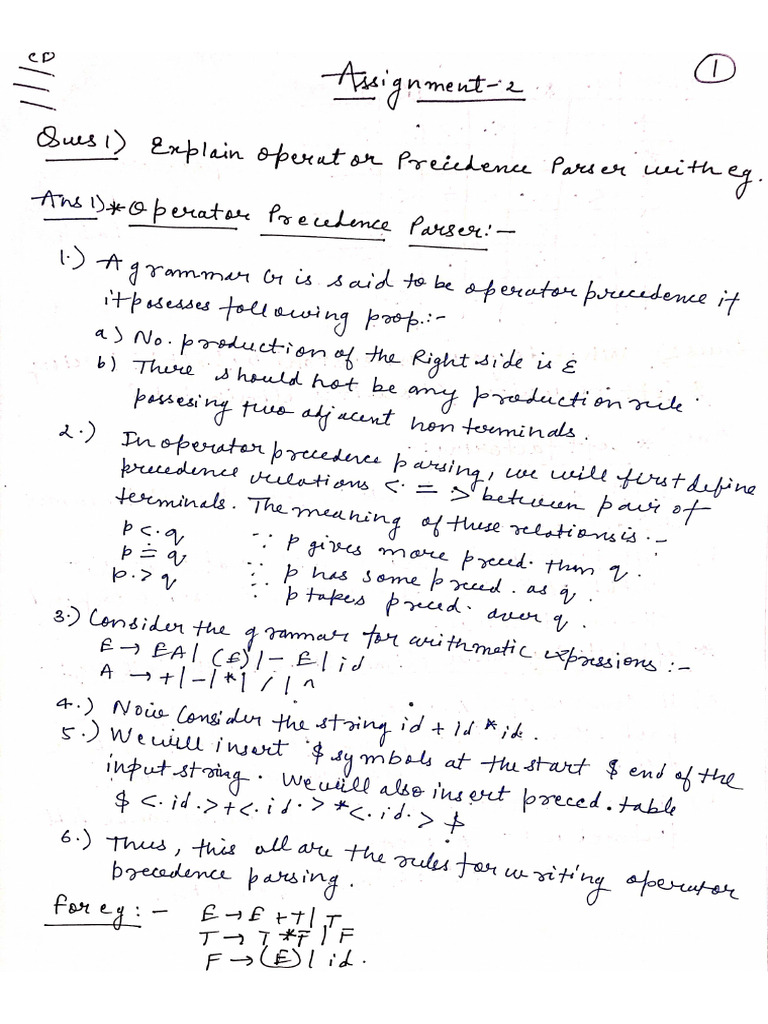 CD
Assignment-2
1
Ques 1) Explain operator Preiedence Parser with eg.
Ans 1) * Operator Precedence Parser:-
1.) A grammar G is said to be operator precedence if
it posesses following prop.:-
a) No. production of the Right side is ε
b) There should not be any production rule
possesing two adjacent non terminals.
2.) In operator precedence parsing, we will first define
precedence relations <· = ·> between pair of
terminals. The meaning of these relations is :-
p <· q ∵ p gives more preced. than q.
p ≐ q ∵ p has same preced. as q.
p ·> q ∵ p takes preced. over q.
3.) Consider the grammar for arithmetic expressions :-
E → EA | (E) | - E | id
A → + | - | * | / | ^
4.) Now Consider the string id + id * id.
5.) We will insert $ symbols at the start $ end of the
input string. We will also insert preced. table
$ <· id ·> + <· id ·> * <· id ·> $
6.) Thus, this all are the rules for writing operator
precedence parsing.
For eg :- E → E + T | T
T → T * F | F
F → (E) | id.